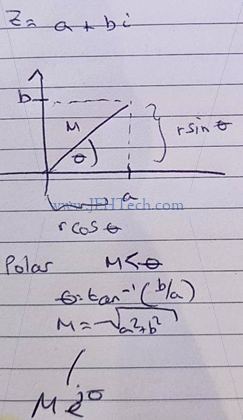 z = a + bi
b
M
θ
r sin θ
a
www.JEHTech.com
r cos θ
Polar M<θ
θ = tan⁻¹(b/a)
M = √a²+b²
M e^jθ